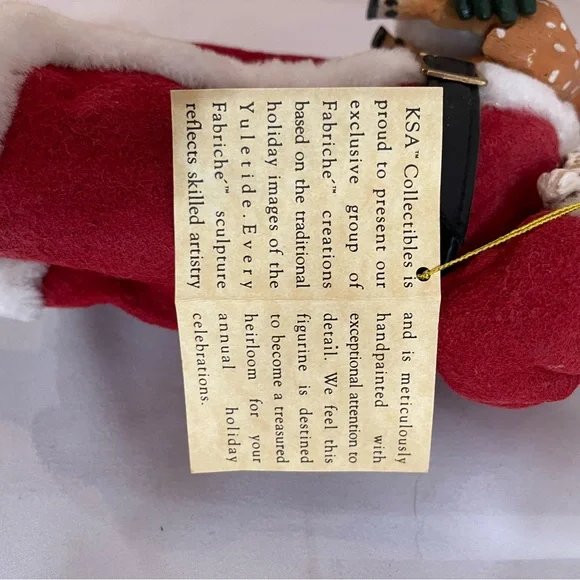 KSA™ Collectibles is
proud to present our
exclusive group of
Fabriché™ creations
based on the traditional
holiday images of the
Yuletide. Every
Fabriché™ sculpture
reflects skilled artistry
and is meticulously
handpainted with
exceptional attention to
detail. We feel this
figurine is destined
to become a treasured
heirloom for your
annual holiday
celebrations.